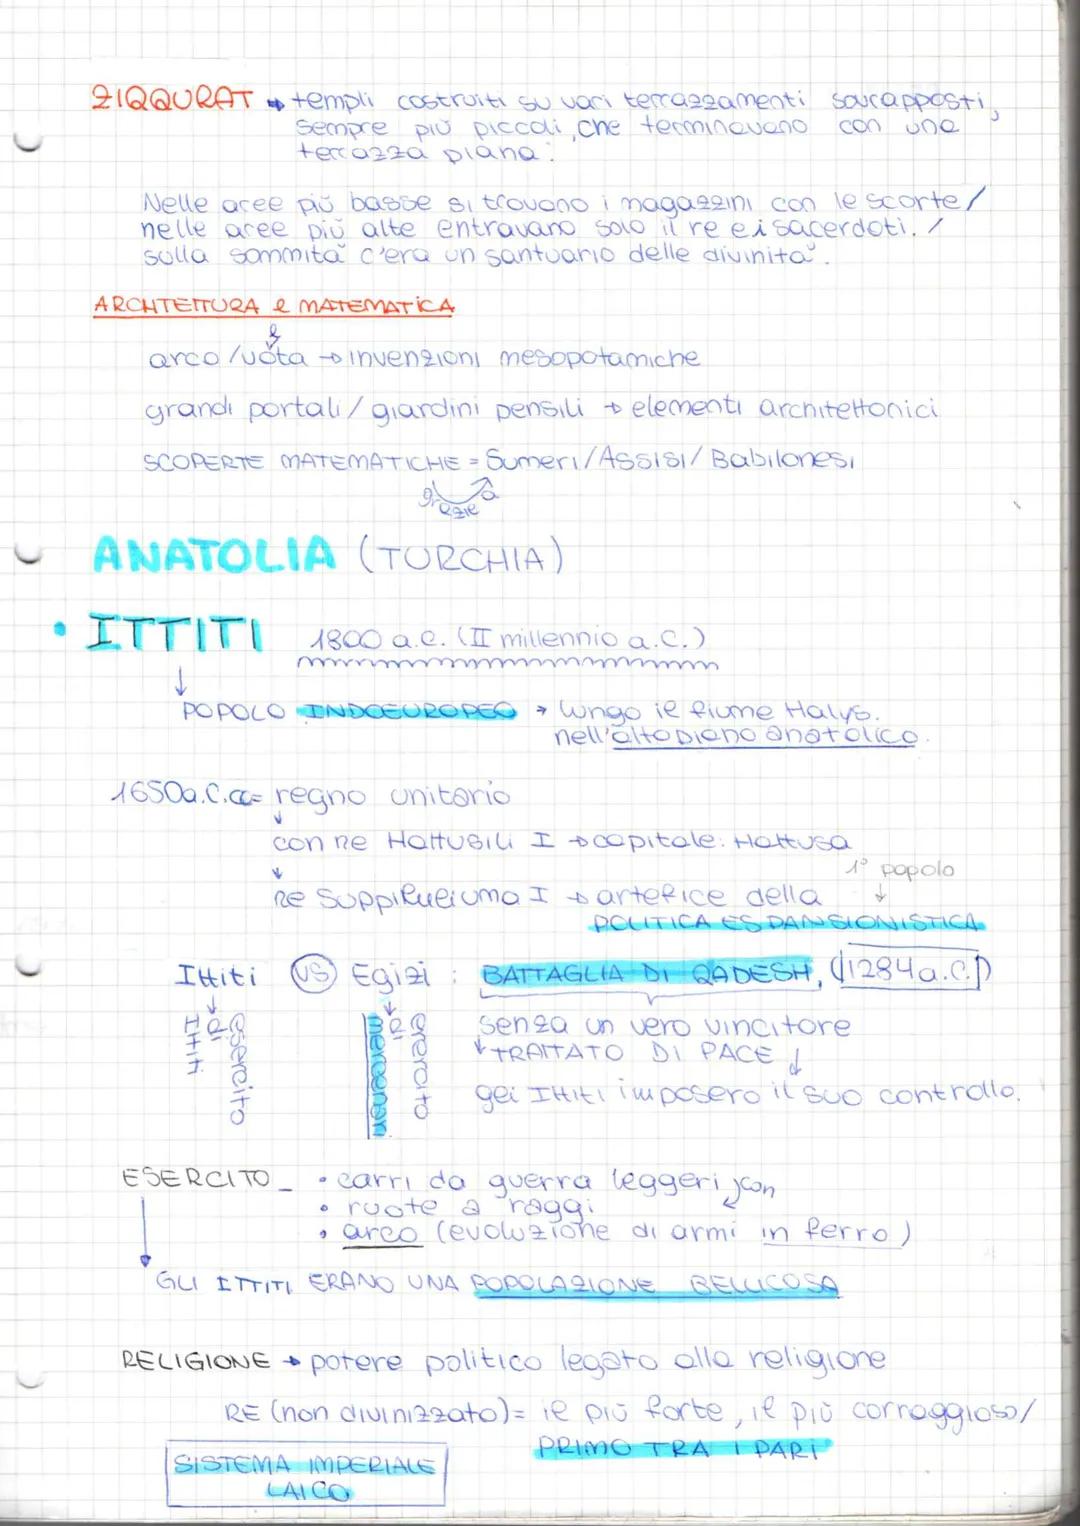 ZIQQURAT → templi costruiti su vari terrazzamenti sovrapposti,
sempre più piccoli, che terminavano con una
terrazza piana.
Nelle aree più basse si trovano i magazzini con le scorte /
nelle aree più alte entravano solo il re e i sacerdoti. /
sulla sommità c'era un santuario delle divinità.
ARCHITETTURA e MATEMATICA
arco / volta → invenzioni mesopotamiche
grandi portali / giardini pensili → elementi architettonici
SCOPERTE MATEMATICHE = Sumeri / Assisi / Babilonesi
grazie a
ANATOLIA (TURCHIA)
• ITTITI 1800 a.C. (II millennio a.C.)
↓
POPOLO INDOEUROPEO → lungo il fiume Halys.
nell'altopiano anatolico.
1650 a.C. = regno unitario
↓
con re Hattusili I → capitale: Hattusa
↓
1° popolo
re Suppiluliuma I → artefice della
POLITICA ESPANSIONISTICA
Ittiti VS Egizi : BATTAGLIA DI QADESH, (1284 a.C.)
esercito di Ittiti
esercito di mercenari
senza un vero vincitore
↓ TRATTATO DI PACE ↓
gli Ittiti imposero il suo controllo.
ESERCITO • carri da guerra leggeri, con
• ruote a raggi
• arco (evoluzione di armi in ferro)
GLI ITTITI ERANO UNA POPOLAZIONE BELLICOSA
RELIGIONE → potere politico legato alla religione
RE (non divinizzato) = il più forte, il più corraggioso /
PRIMO TRA I PARI
SISTEMA IMPERIALE
LAICO